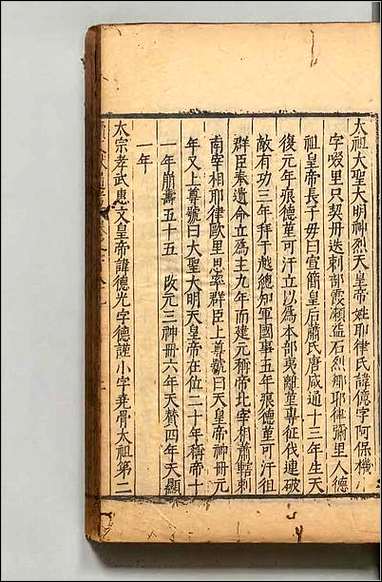 太祖大聖大明神烈天皇帝姓耶律氏諱億字阿保機小
字啜里只契丹迭剌部霞瀬益石烈耶律彌里人德
祖皇帝長子母曰宣簡皇后蕭氏唐咸通十三年生天
復元年痕德堇可汗立以爲本部夷离堇專征伐連破
敵有功三年拜于越總知軍國事五年痕德堇可汗徂
群臣奉遺命立爲主九年而建元稱帝北宰相蕭轄剌
南宰相耶律歐里思率群臣上尊號曰天皇帝神冊元
年又上尊號曰大聖大明天皇帝在位二十年稱帝十
一年崩壽五十五 改元三神冊六年天贊四年天顯
一年
太宗孝武惠文皇帝諱德光字德謹小字堯骨太祖第二